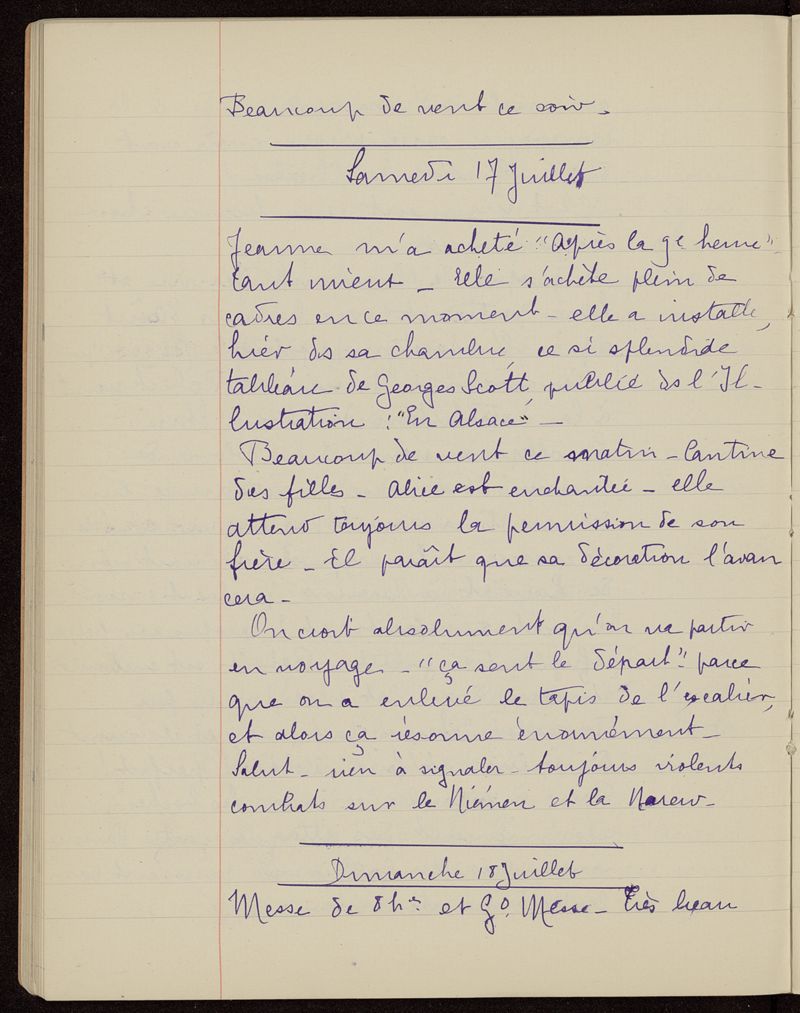 Beaucoup de vent ce soir.
Samedi 17 Juillet
Jeanne m'a acheté "Après la 9e heure"
tant mieux _ Elle s'achète plein de
cadres en ce moment _ elle a installé,
hier ds sa chambre, ce si splendide
tableau de Georges Scott, publié ds l'Il-
lustration : "En Alsace" _
Beaucoup de vent ce matin _ Cantine
des filles _ Alice est enchantée _ elle
attend toujours la permission de son
frère _ Il paraît que sa décoration l'avan
cera _
On croit absolument qu'on va partir
en voyage _ "ça sent le départ" parce
que on a enlevé le tapis de l'escalier,
et alors ça résonne énormément _
Salut _ rien à signaler _ toujours violents
combats sur le Niémen et la Narew _
Dimanche 18 Juillet
Messe de 8 hes et Gd. Messe _ Très beau